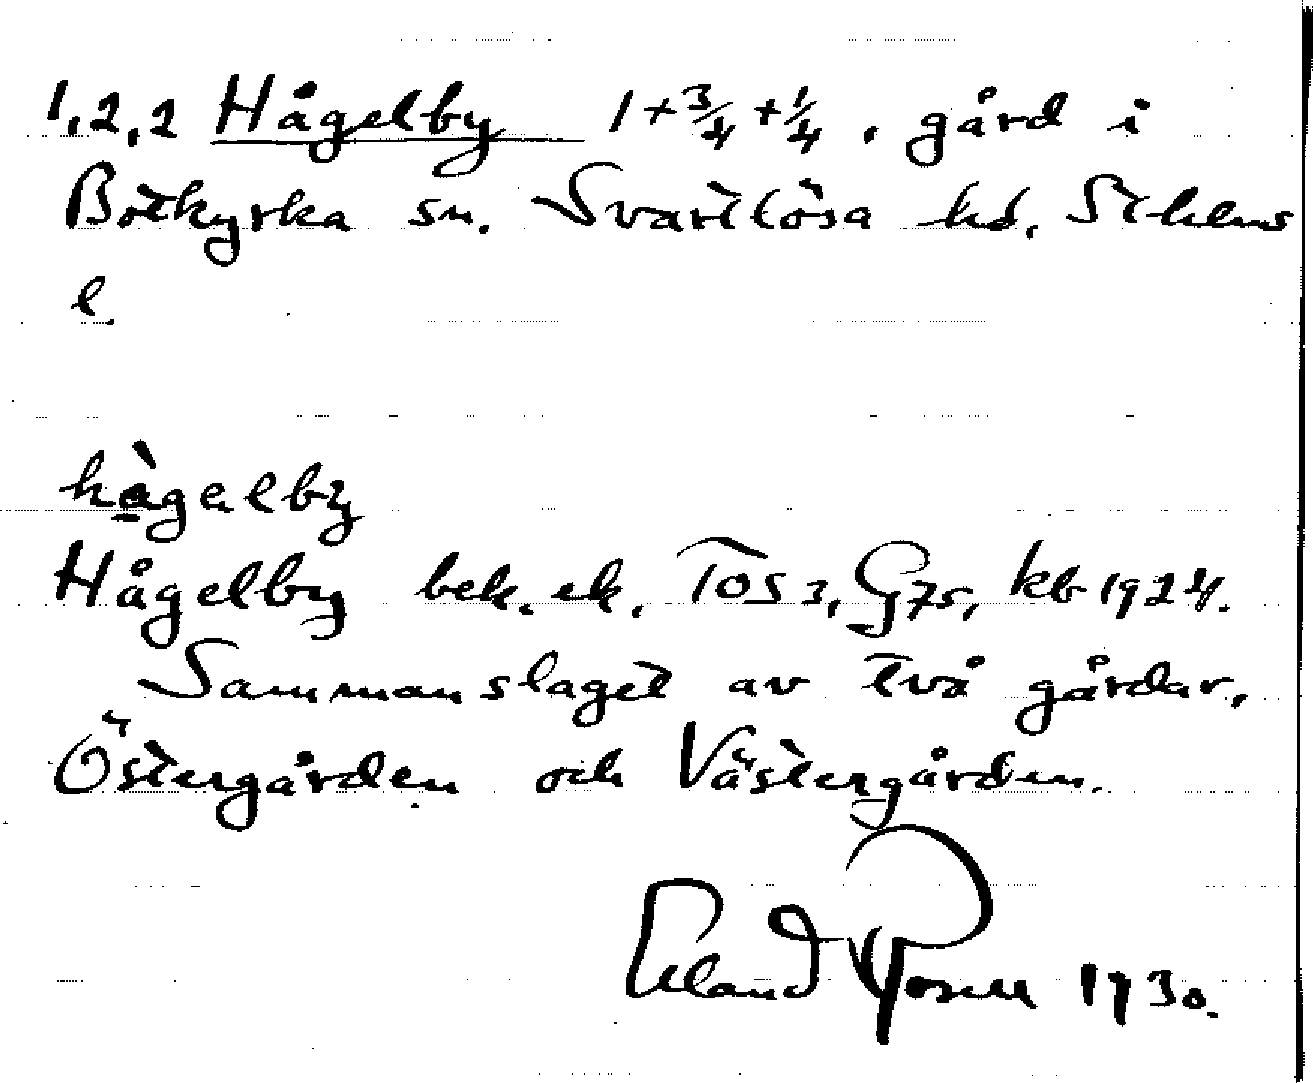 1,2,2 Hågelby 1+3/4+1/4, gård i
Botkyrka sn. Svartlösa hd, Sthlms
l.
hågelby
Hågelby bek. ek, TOS 3, G75, kb 1924.
Sammanslaget av två gårdar,
Östergården och Västergården.
Erland Rosell 1930.